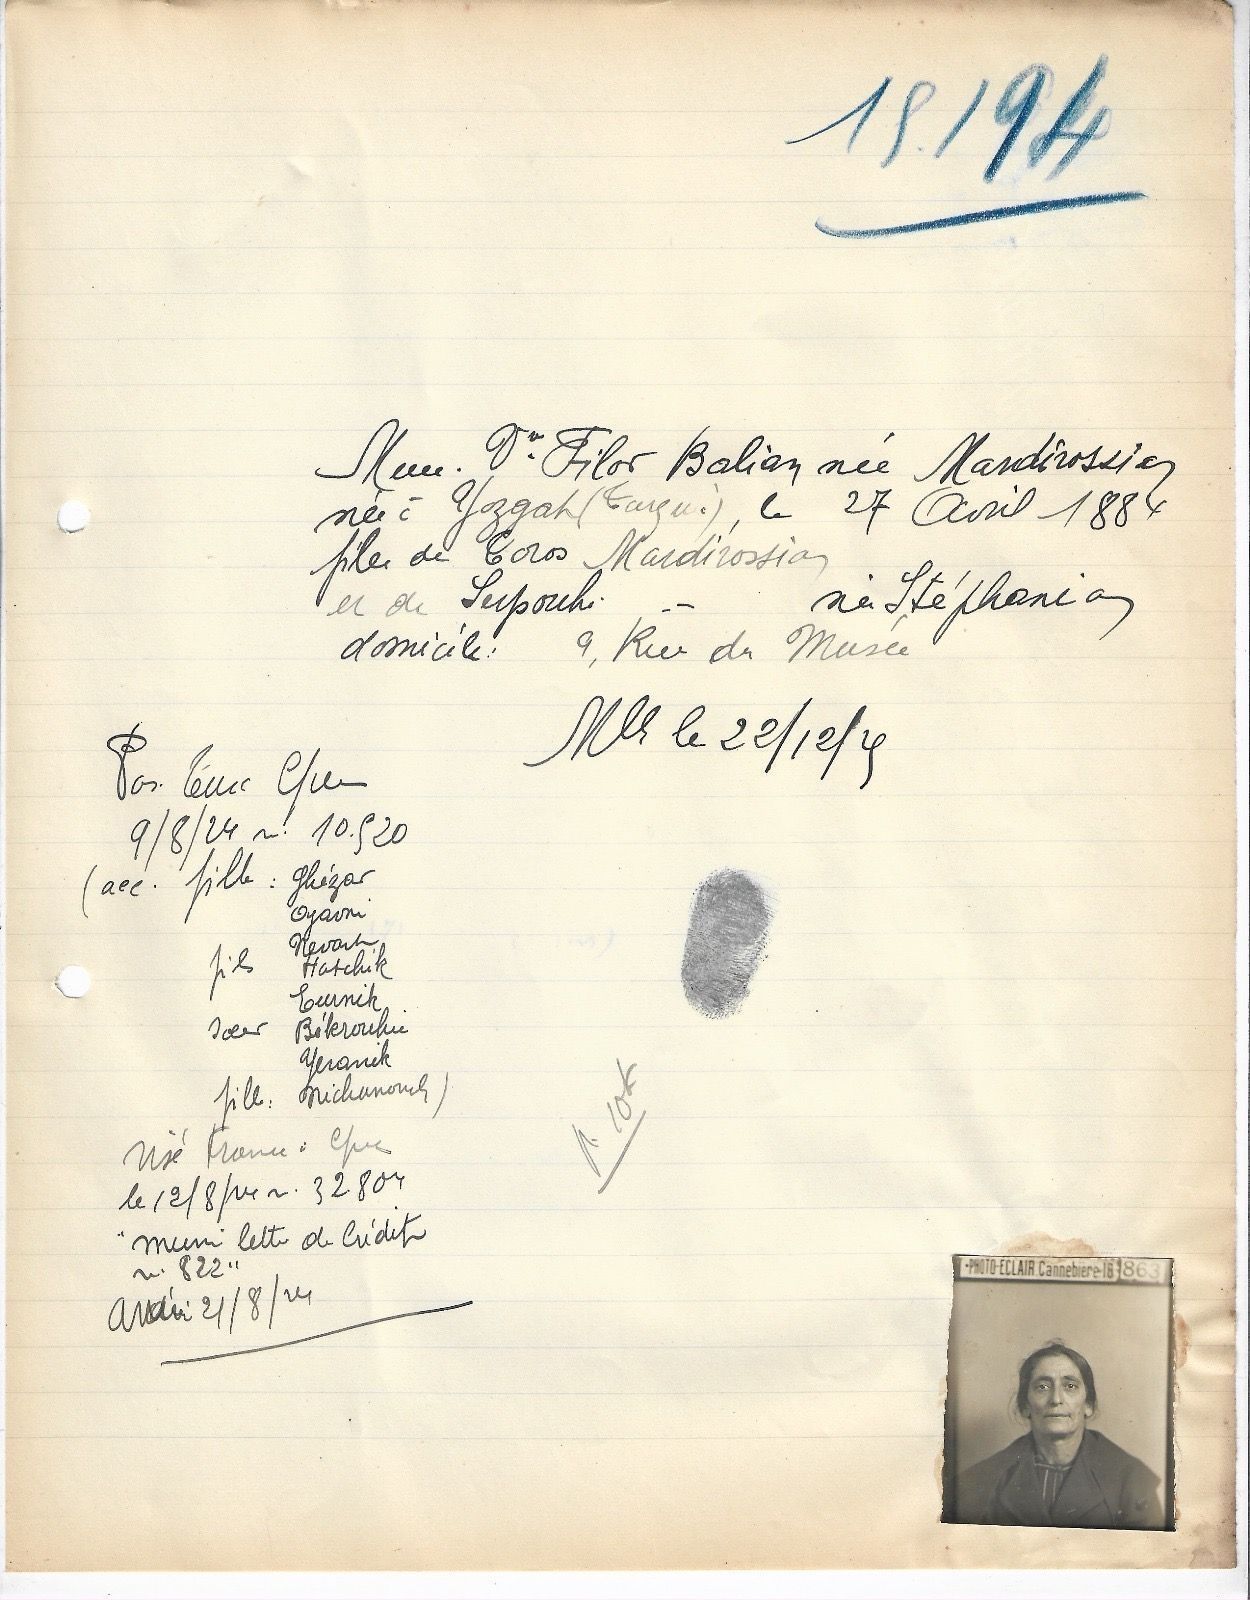 15.194
Mme. Ve. Filor Balian née Mardirossian
née à Yozgat (Turquie), le 27 Avril 1884
fille de Toros Mardirossian
et de Serpouhi -- née Stéphanian
domicile: 9, Rue du Musée
Mlle le 22/12/25
Pas. Cple
9/8/24 n. 10.520
(acc. fille: Ghézar
Ogavni
Nevart
fils Hatchik
Turnik
soeur Békrouhie
Yeranik
fille: Michanouch)
Visé France: Cple
le 12/8/24 n. 32804
"muni lettre de Crédit
n. 822"
21/8/24
PHOTO-ECLAIR Cannebière-18 863